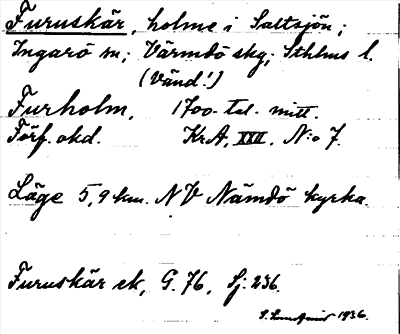 Furuskär, holme i Saltsjön;
Ingarö sn; Värmdö skg; Sthlms l.
(Vänd!)
Furholm, 1700-tal. mitt.
Förf. okd. Kr.A. XXII. N:o 7.
Läge 5,9 km. NV Nämdö kyrka.
Furuskär ek, G. 76, Sj. 236.
1936.